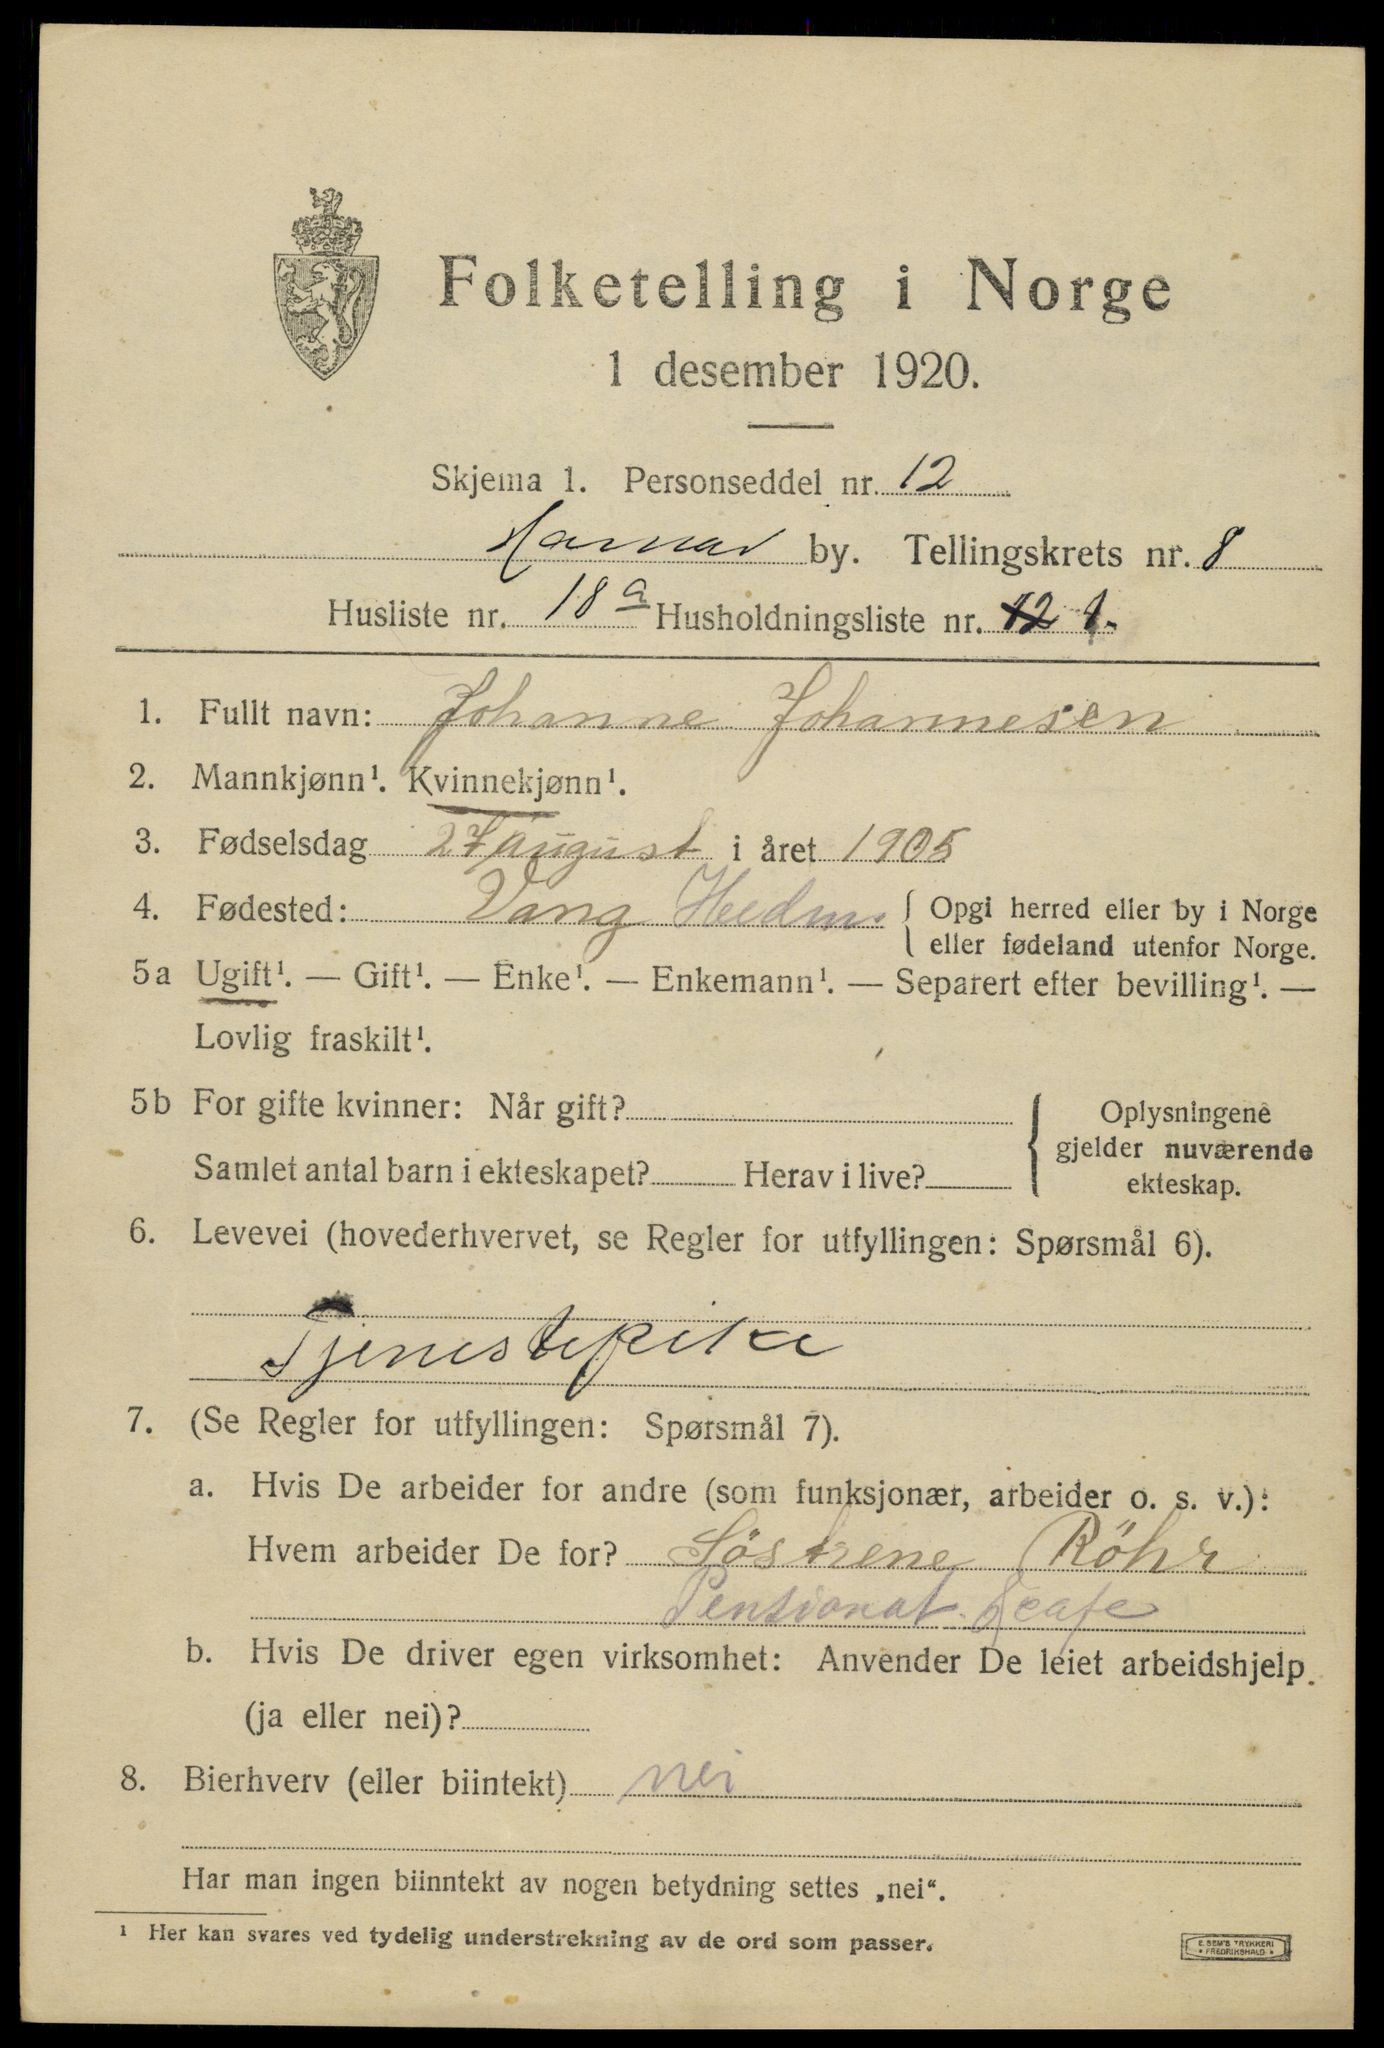 Folketelling i Norge
1 desember 1920.
Skjema 1. Personseddel nr. 12
Hamar by. Tellingskrets nr. 8
Husliste nr. 18 a Husholdningsliste nr. 12 1.
1. Fullt navn: Johanne Johannesen
2. Mannkjønn¹. Kvinnekjønn¹.
3. Fødselsdag 27 August i året 1905
4. Fødested: Vang Hedm. { Opgi herred eller by i Norge
eller fødeland utenfor Norge.
5a Ugift¹. — Gift¹. — Enke¹. — Enkemann¹. — Separert efter bevilling¹. —
Lovlig fraskilt¹.
5b For gifte kvinner: Når gift? { Oplysningene
gjelder nuværende
Samlet antal barn i ekteskapet? Herav i live? ekteskap.
6. Levevei (hovederhvervet, se Regler for utfyllingen: Spørsmål 6).
Tjenestepike
7. (Se Regler for utfyllingen: Spørsmål 7).
a. Hvis De arbeider for andre (som funksjonær, arbeider o. s. v.):
Hvem arbeider De for? Söstrene Röhr
Pensionat & cafe
b. Hvis De driver egen virksomhet: Anvender De leiet arbeidshjelp
(ja eller nei)?
8. Bierhverv (eller biintekt) nei
Har man ingen biinntekt av nogen betydning settes „nei“.
¹ Her kan svares ved tydelig understrekning av de ord som passer.
E. SEM'S TRYKKERI
* FREDRIKSHALD *